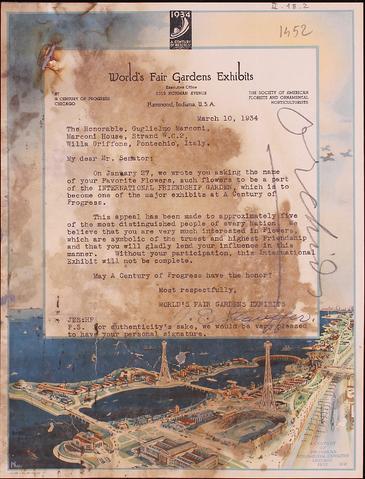 II-18.2
1452
1934
A CENTURY
OF PROGRESS
World's Fair Gardens Exhibits
Executive Office
AT
A CENTURY OF PROGRESS
CHICAGO
THE SOCIETY OF AMERICAN
FLORISTS AND ORNAMENTAL
HORTICULTURISTS
Hammond, Indiana, U.S.A.
March 10, 1934
The Honorable, Guglielmo Marconi,
Marconi House, Strand W.C.2,
Willa Griffone, Pontechio, Italy.
My dear Mr. Senator:
On January 27, we wrote you asking the name
of your Favorite Flowers, such flowers to be a part
of the INTERNATIONAL FRIENDSHIP GARDEN, which is to
become one of the major exhibits at A Century of
Progress.
This appeal has been made to approximately five
of the most distinguished people of every Nation. We
believe that you are very much interested in Flowers,
which are symbolic of the truest and highest Friendship
and that you will gladly lend your influence in this
manner. Without your participation, this International
Exhibit will not be complete.
May A Century of Progress have the honor?
Most respectfully,
WORLD'S FAIR GARDENS EXHIBITS
JES:HF
P.S. For authenticity's sake, we would be very pleased
to have your personal signature.
A CENTURY
OF
PROGRESS
INTERNATIONAL EXPOSITION
CHICAGO